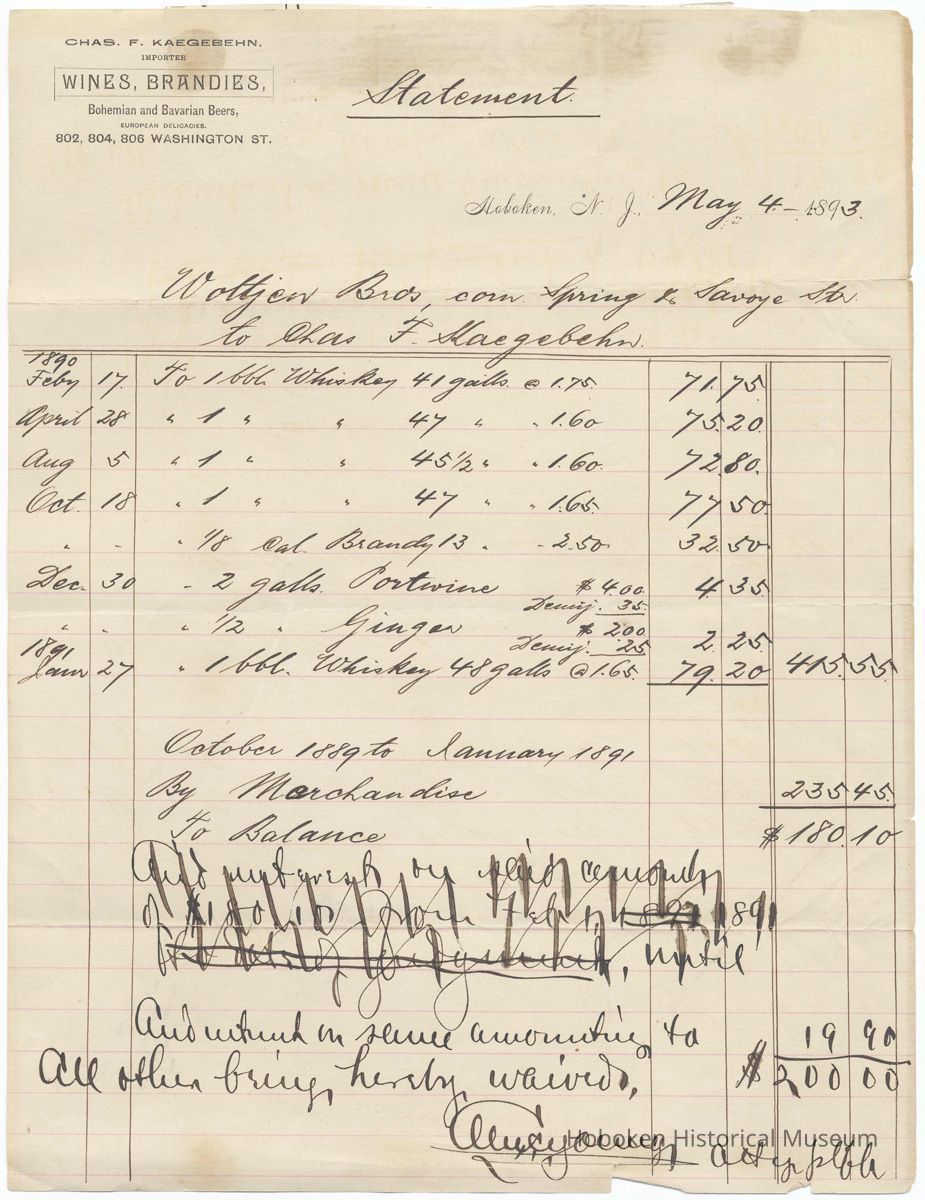 CHAS. F. KAEGEBEHN.
IMPORTER
WINES, BRANDIES,
Bohemian and Bavarian Beers,
EUROPEAN DELICACIES.
802, 804, 806 WASHINGTON ST.
Statement.
Hoboken, N. J., May 4 – 1893.
Woltjen Bros, corn. Spring & Savoye Str.
to Chas F. Kaegebehn.
1890
Feby 17. To 1 bbl. Whiskey 41 galls. @ 1.75. 71.75
April 28 " 1 " " 47 " " 1.60 75.20
Aug 5 " 1 " " 45 1/2 " " 1.60. 72.80.
Oct. 18 " 1 " " 47 " " 1.65. 77 50
" " " 1/8 Cal. Brandy 13 " - 2.50 32.50
Dec. 30 - 2 galls. Portwine $ 4.00. 4 35
Demij. 35.
" " " 1/2 " Ginger $ 2.00 2.25
Demij. 25
1891
Janr 27 " 1 bbl. Whiskey 48 galls @ 1.65. 79.20 415.55
October 1889 to January 1891
By Merchandise 235 45.
To Balance $ 180.10
And interest on said amount
of $180.10 from Feb 1 1891 1891
, until
And interest on same amounting to 19 90
All other being hereby waived, $ 200 00
Hoboken Historical Museum